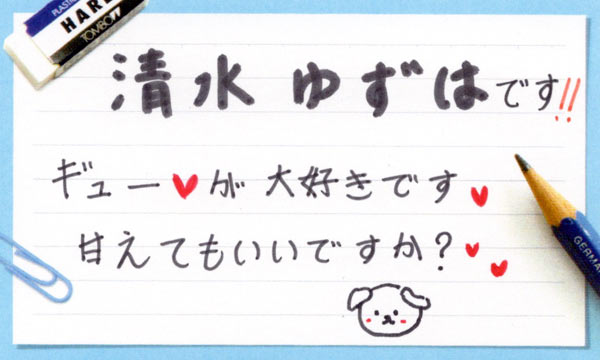 PLASTIC
HARD
TOMBOW
清水 ゆずは です!!
ギュー♥が 大好きです♥
甘えてもいいですか?♥♥
GERMAN